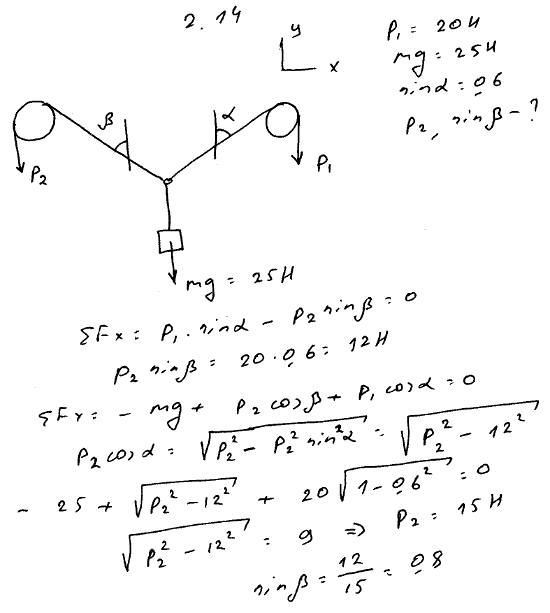 2. 14
y
x
P₁ = 20H
mg = 25H
sinα = 0,6
P₂, sinβ - ?
β
α
P₂
P₁
mg = 25H
ΣFx = P₁ · sinα - P₂ sinβ = 0
P₂ sinβ = 20 · 0,6 = 12H
ΣFY = - mg + P₂ cosβ + P₁ cosα = 0
P₂ cosα = √(P₂² - P₂² sin²α) = √(P₂² - 12²)
- 25 + √(P₂² - 12²) + 20 √(1 - 0,6²) = 0
√(P₂² - 12²) = 9 ⇒ P₂ = 15H
sinβ = 12/15 = 0,8